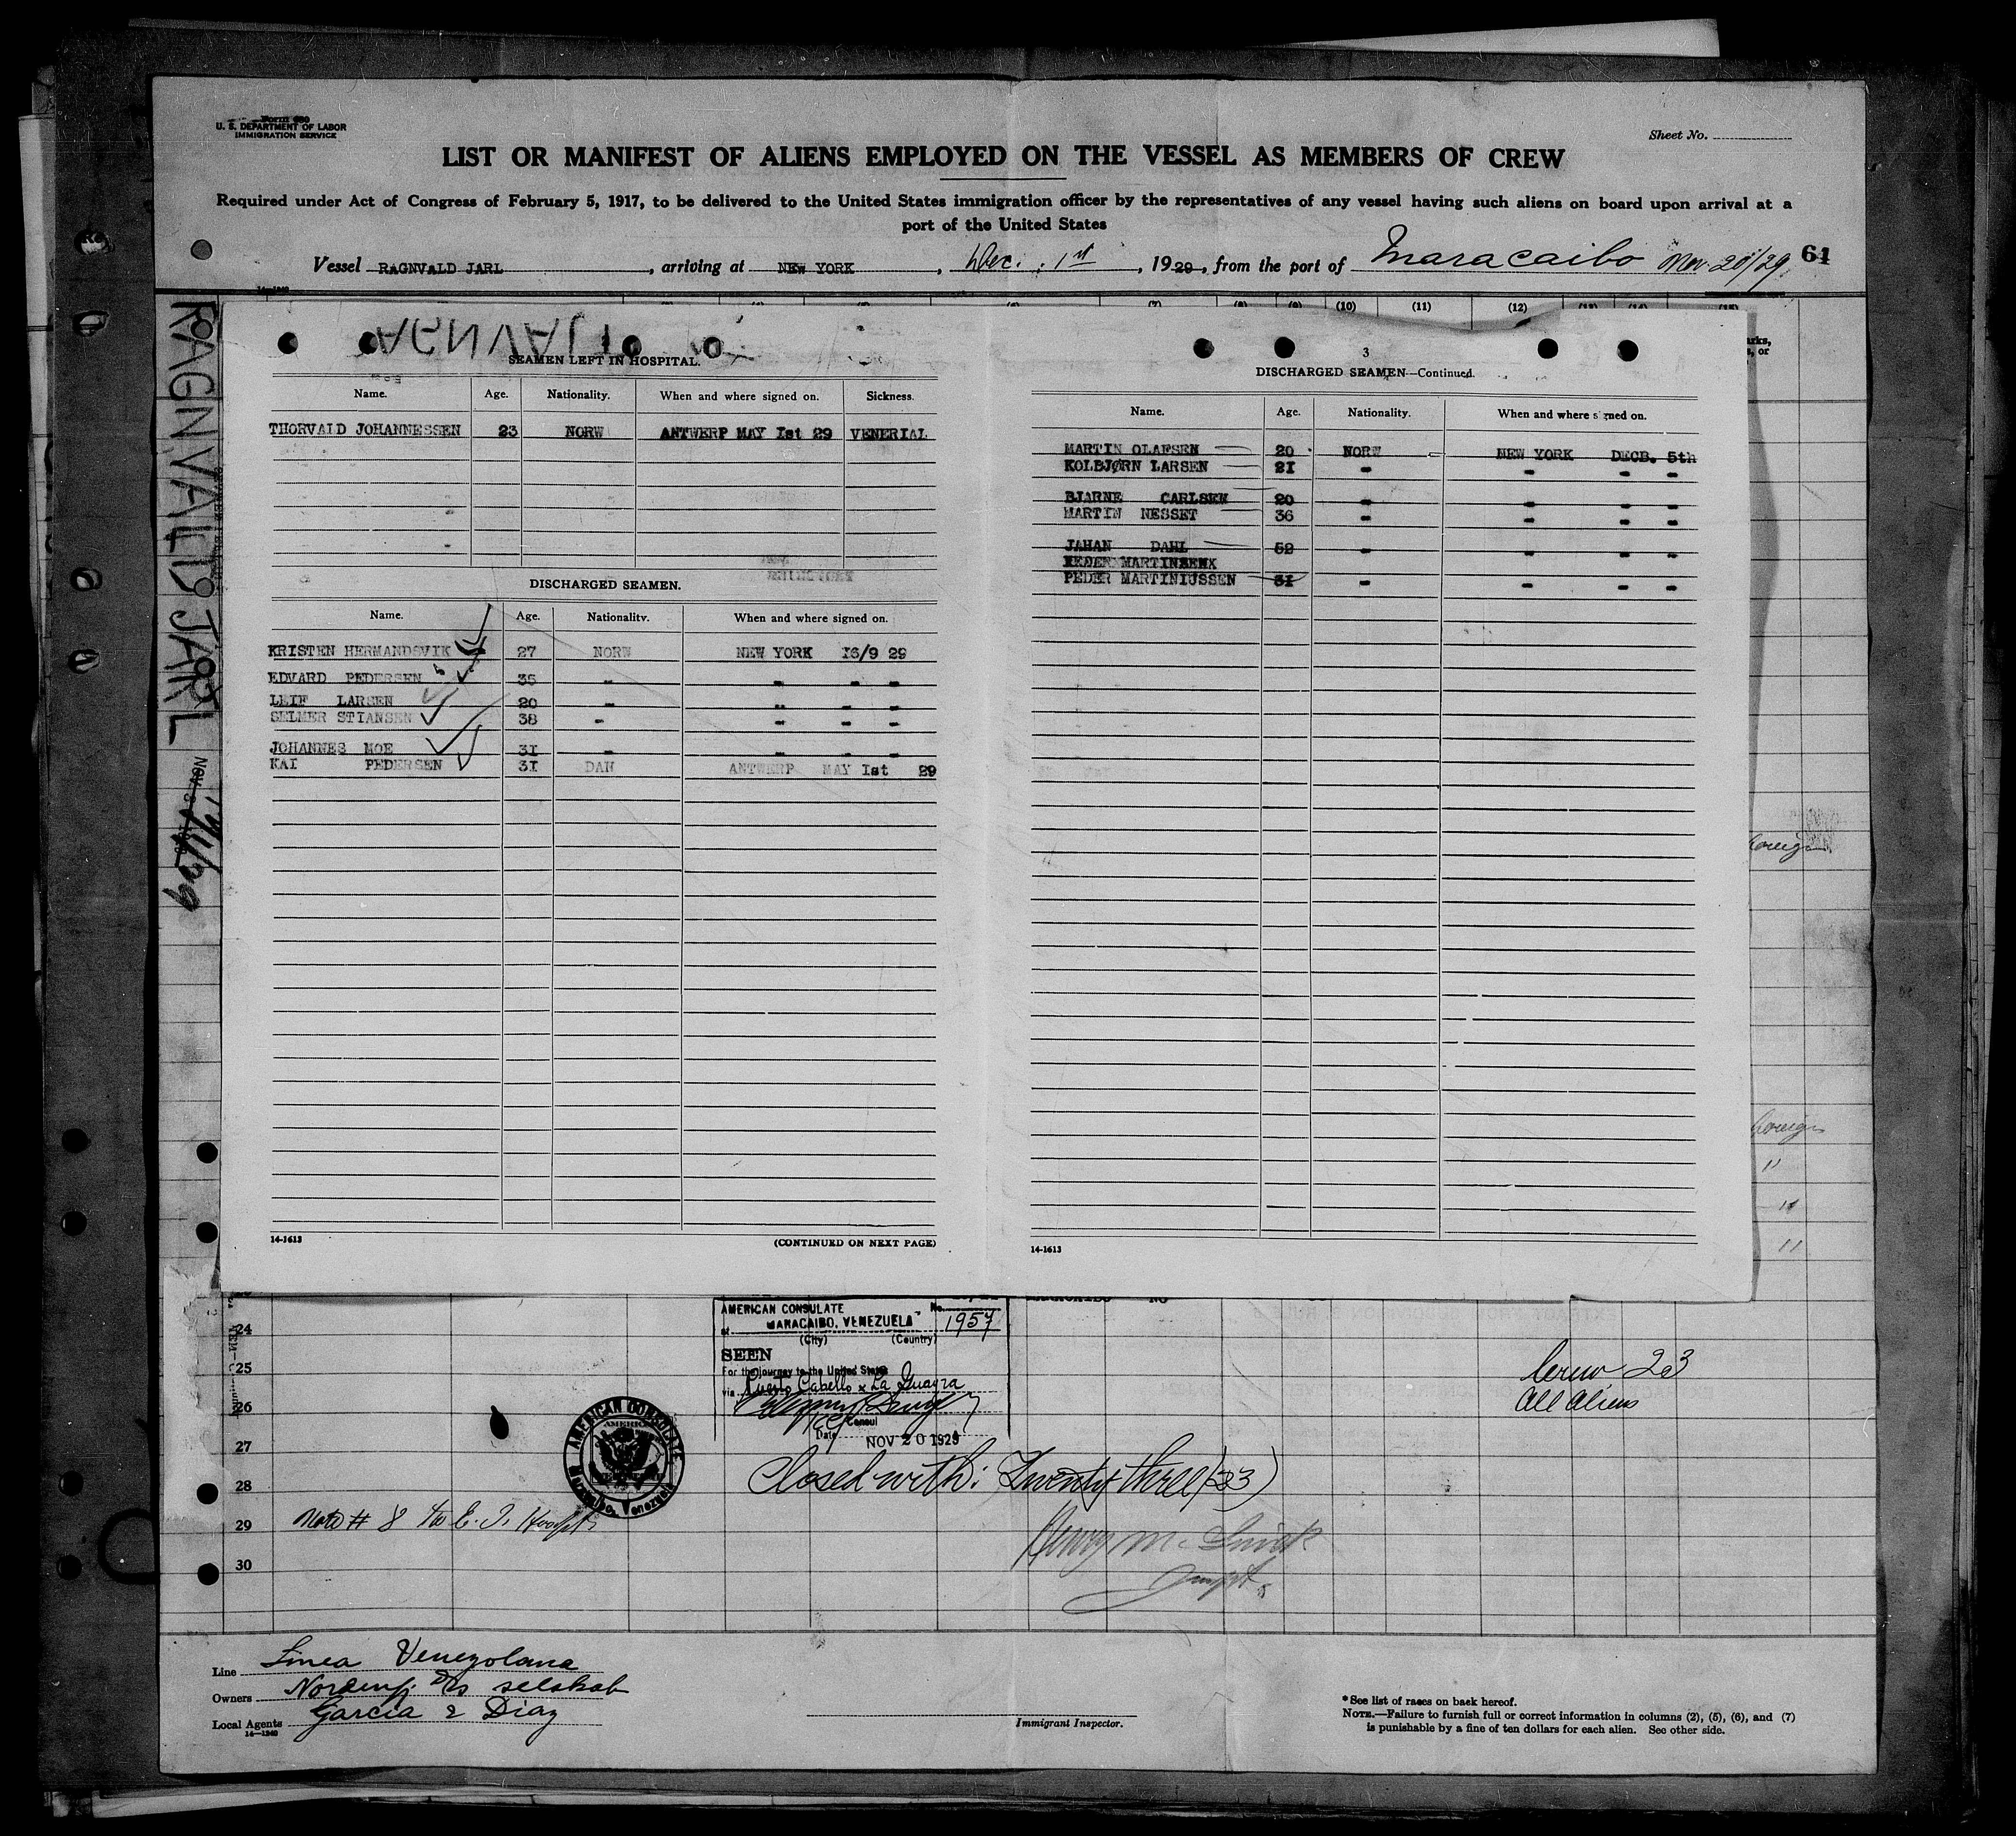 Form 680
U. S. DEPARTMENT OF LABOR
IMMIGRATION SERVICE
Sheet No.
LIST OR MANIFEST OF ALIENS EMPLOYED ON THE VESSEL AS MEMBERS OF CREW
Required under Act of Congress of February 5, 1917, to be delivered to the United States immigration officer by the representatives of any vessel having such aliens on board upon arrival at a
port of the United States
Vessel RAGNVALD JARL, arriving at NEW YORK, Dec. 1st, 1929, from the port of Maracaibo Nov 20/29
61
14-1240
(10) (11) (12)
RAGNVALD JARL
SEAMEN LEFT IN HOSPITAL.
Name. Age. Nationality. When and where signed on. Sickness.
THORVALD JOHANNESSEN 23 NORW ANTWERP MAY Ist 29 VENERIAL
DISCHARGED SEAMEN.
Name. Age. Nationality. When and where signed on.
KRISTEN HERMANDSVIK 27 NORW NEW YORK I6/9 29
EDVARD PEDERSEN 36 - - - -
LEIF LARSEN 20 - - - -
SELMER STIANSEN 38 - - - -
JOHANNES MOE 3I - - - -
KAI PEDERSEN 3I DAN ANTWERP MAY Ist 29
14-1613
(CONTINUED ON NEXT PAGE)
3
DISCHARGED SEAMEN—Continued.
Name. Age. Nationality. When and where signed on.
MARTIN OLAFSEN 20 NORW NEW YORK DECB. 5th
KOLBJØRN LARSEN 2I - - - -
BJARNE CARLSEN 20 - - - -
MARTIN NESSET 36 - - - -
JAHAN DAHL 52 - - - -
PEDER MARTINIUSSEN 3I - - - -
14-1613
Foreign
Foreign
"
"
"
24
25
26
27
28
29
30
AMERICAN CONSULATE No. 1957
at MARACAIBO, VENEZUELA
(City) (Country)
SEEN
For the journey to the United States
via Puerto Cabello & La Guayra
Consul
Date NOV 20 1929
AMERICAN CONSULATE
Maracaibo, Venezuela
Crew 23
All Aliens
Closed with: Twenty three (23)
Note # 8 to E. I. Hospt.
Line Linea Venezolana
Owners Nordenfj. D/s selskab
Local Agents Garcia & Diaz
14-1240
Immigrant Inspector.
*See list of races on back hereof.
NOTE.—Failure to furnish full or correct information in columns (2), (5), (6), and (7)
is punishable by a fine of ten dollars for each alien. See other side.